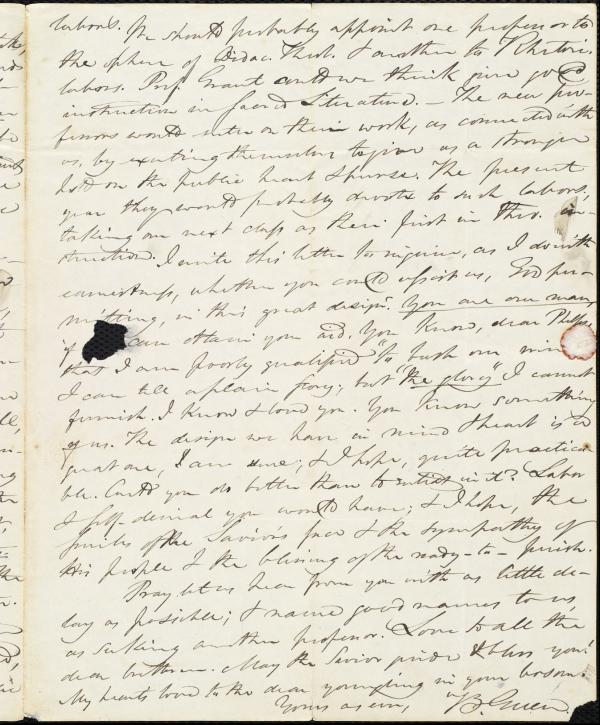 labors. We should probably appoint one professor to
the sphere of Didac. Theol. & another to Rhetori.
labors. Prof. Grant could we think give good
instruction in Sacred Literature. — The new pro-
fessors would enter on their work, as connected with
us, by exerting themselves to give us a stronger
hold on the public heart & purse. The present
year they would probably devote to such labors,
taking our next class as their first in Theo. in-
struction. I write this letter to inquire, as I do with
earnestness, whether you could assist us, God per-
mitting, in this great design. You are our man,
if can obtain your aid. You know, dear Phelps,
that I am poorly qualified "to push our
I can tell a plain story; but "the glory" I cannot
furnish. I know & love you. You know something
of us. The design we have in mind & heart is a
great one, I am sure; & I hope, quite practica-
ble. Could you do better than to enlist in it? Labor
& self-denial you would have; & I hope, the
smiles of the Savior's face & the sympathy of
His people & the blessing of the ready-to-perish.
Pray let us hear from you with as little de-
lay as possible; & name good names to us,
as seeking another professor. Love to all the
dear brethren. May the Savior guide & bless you!
My heart's love to the dear youngling in your bosom.
Yours as ever, B. Green.